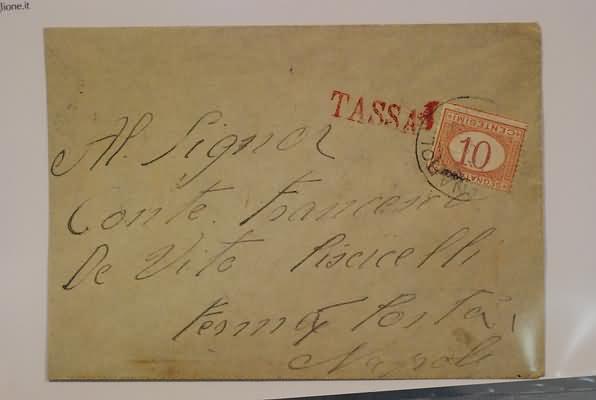 glione.it
TASSA
CENTESIMI
10
SEGNATASSE
Al Signor
Conte Francesco
De Vito Piscicelli
Ferma Posta
Napoli